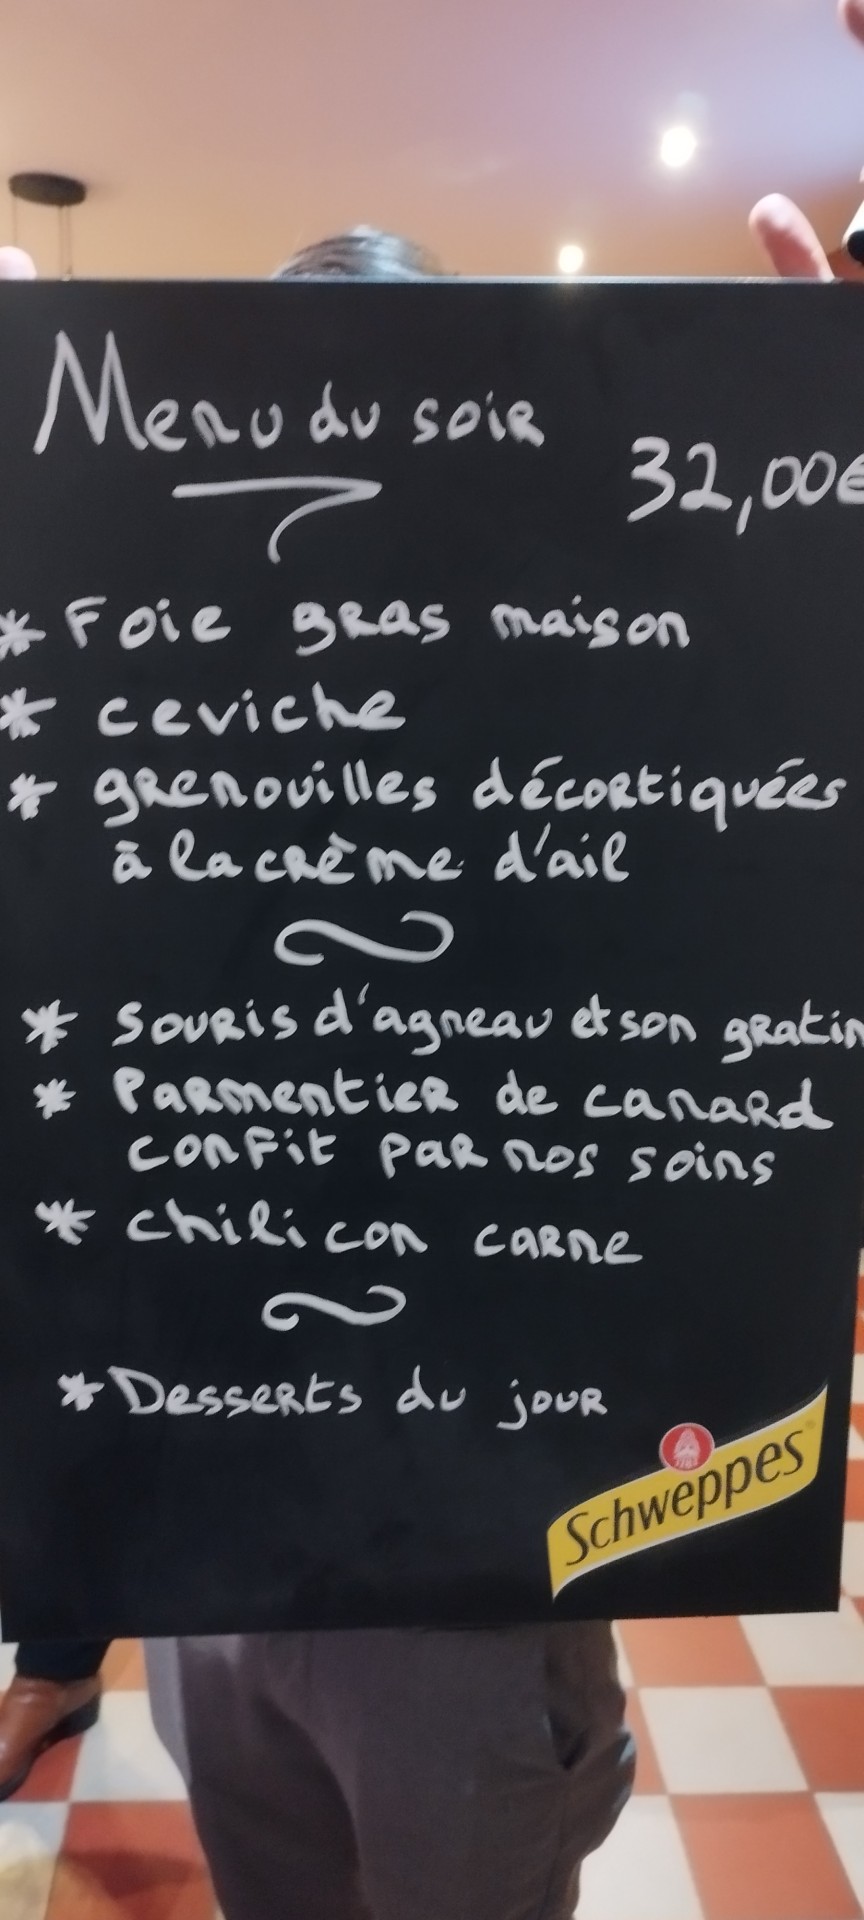 Menu du soir
32,00€
* Foie gras maison
* ceviche
* grenouilles décortiquées
à la crème d'ail
* Souris d'agneau et son gratin
* Parmentier de canard
confit par nos soins
* chili con carne
* Desserts du jour
Schweppes